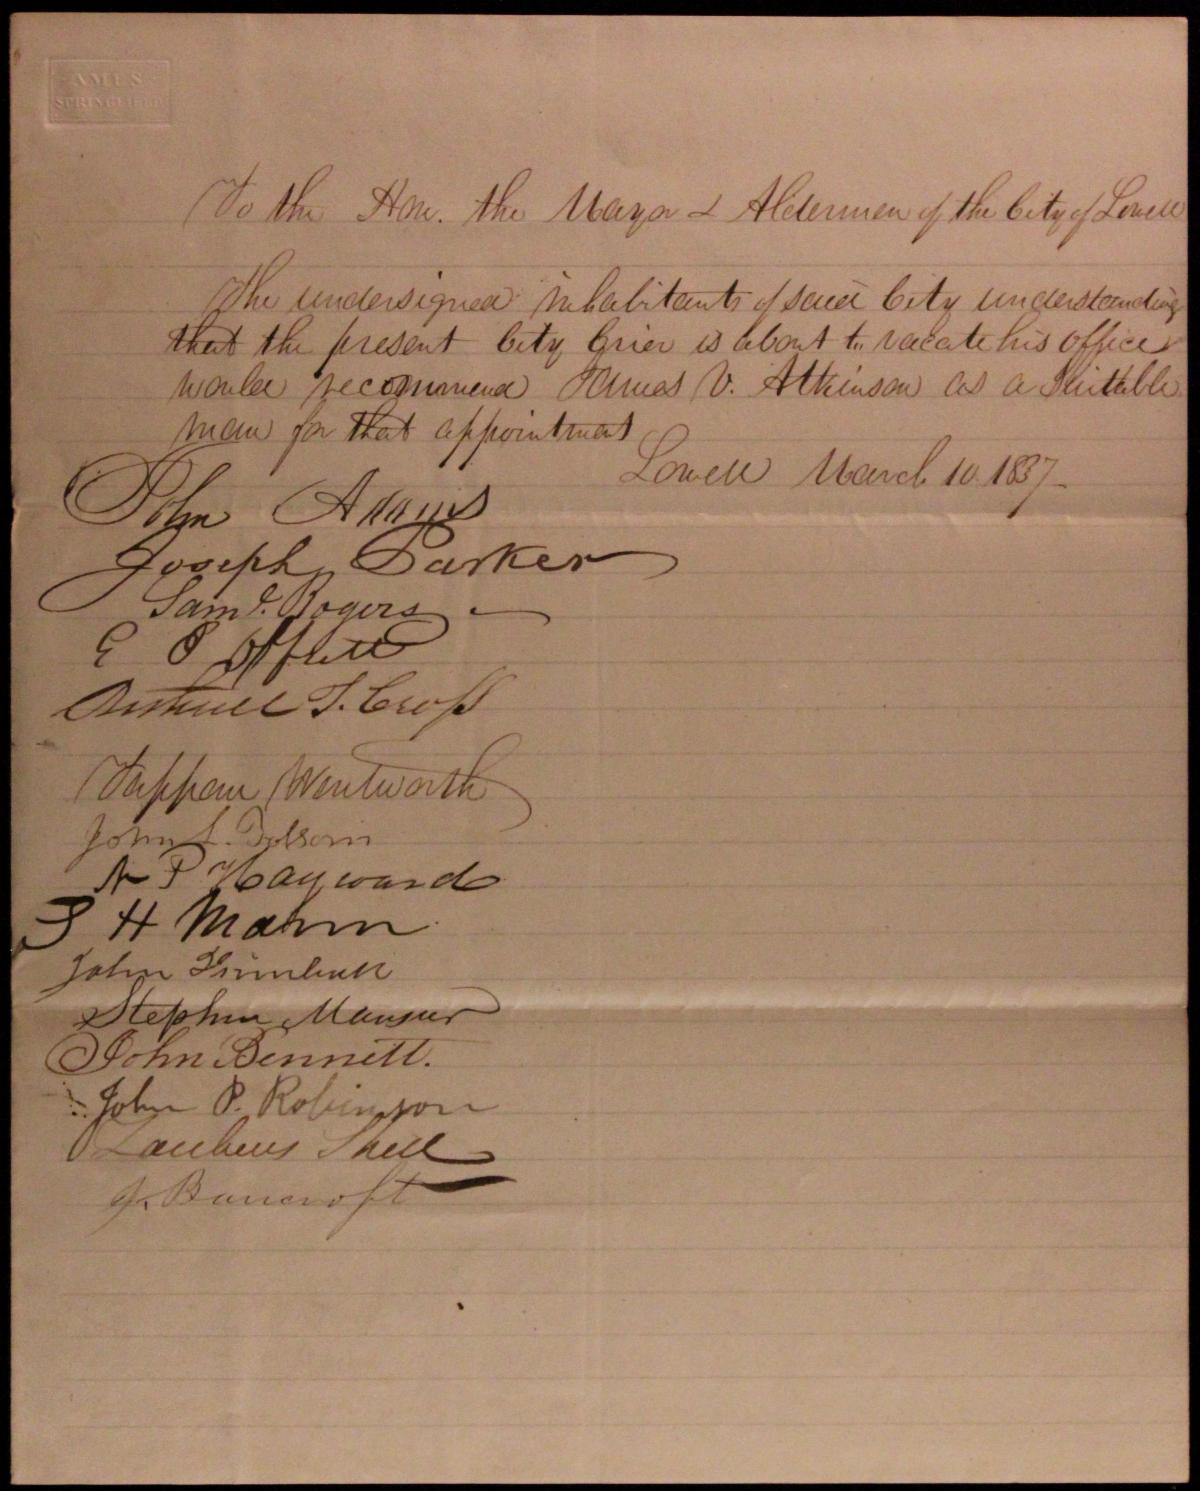 AMES
SPRINGFIELD
To the Hon. the Mayor & Aldermen of the City of Lowell
The undersigned inhabitants of said City understanding
that the present City Crier is about to vacate his office
would recommend James V. Atkinson as a Suitable
man for that appointment
Lowell March 10. 1837
John Adams
Joseph Parker
Saml. Rogers
E
T. Cross
Tappan Wentworth
John L. Folsom
A P Hayward
S H Mann
John Trumbull
Stephen Mansur
John Bennett.
John P. Robinson
J. Bancroft